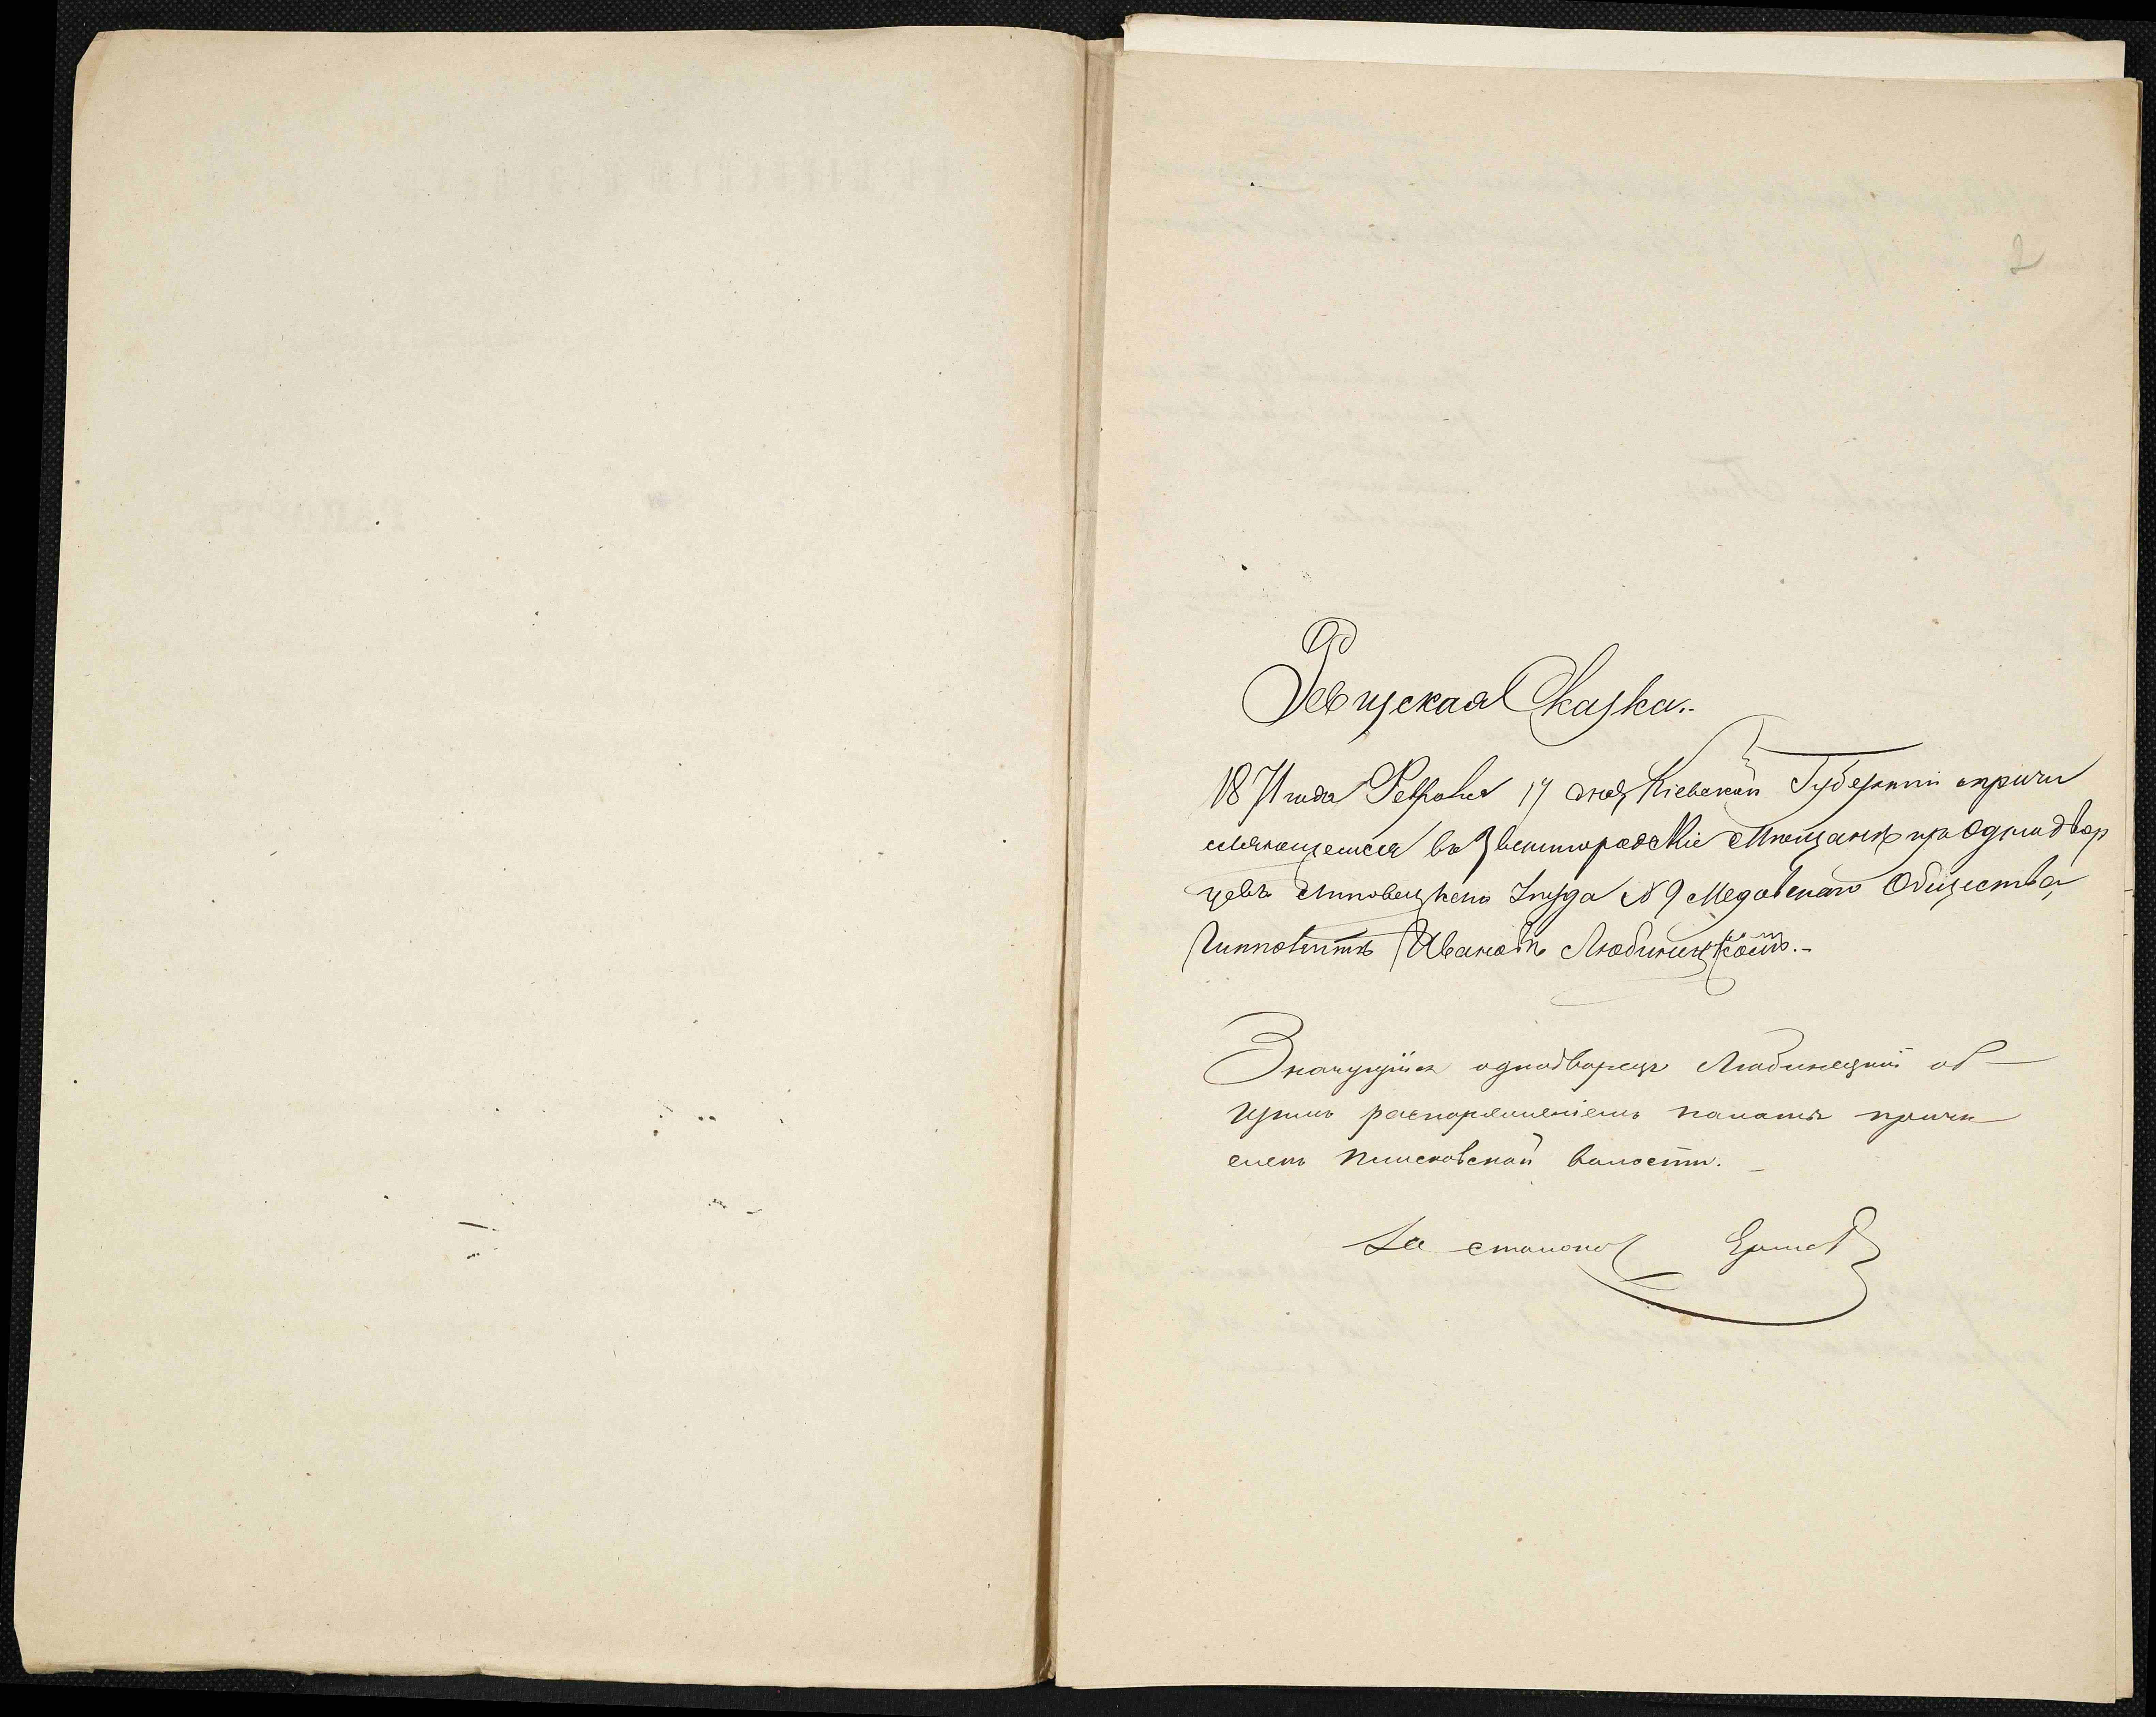 2
Ревизская Сказка.
1871 года Февраля 17 дня, Кіевской Губерніи о причи
сляющемся въ Звенигородскіе Мѣщане изъ Однодвор
цевъ Липовецкаго Уѣзда № 9 Медовскаго Общества,
Ипполитѣ Ивановѣ Любинецкомъ.-
Значущійся однодворецъ Любинецкій об
щимъ распоряженіемъ палаты причи
сленъ волости.
За столонач